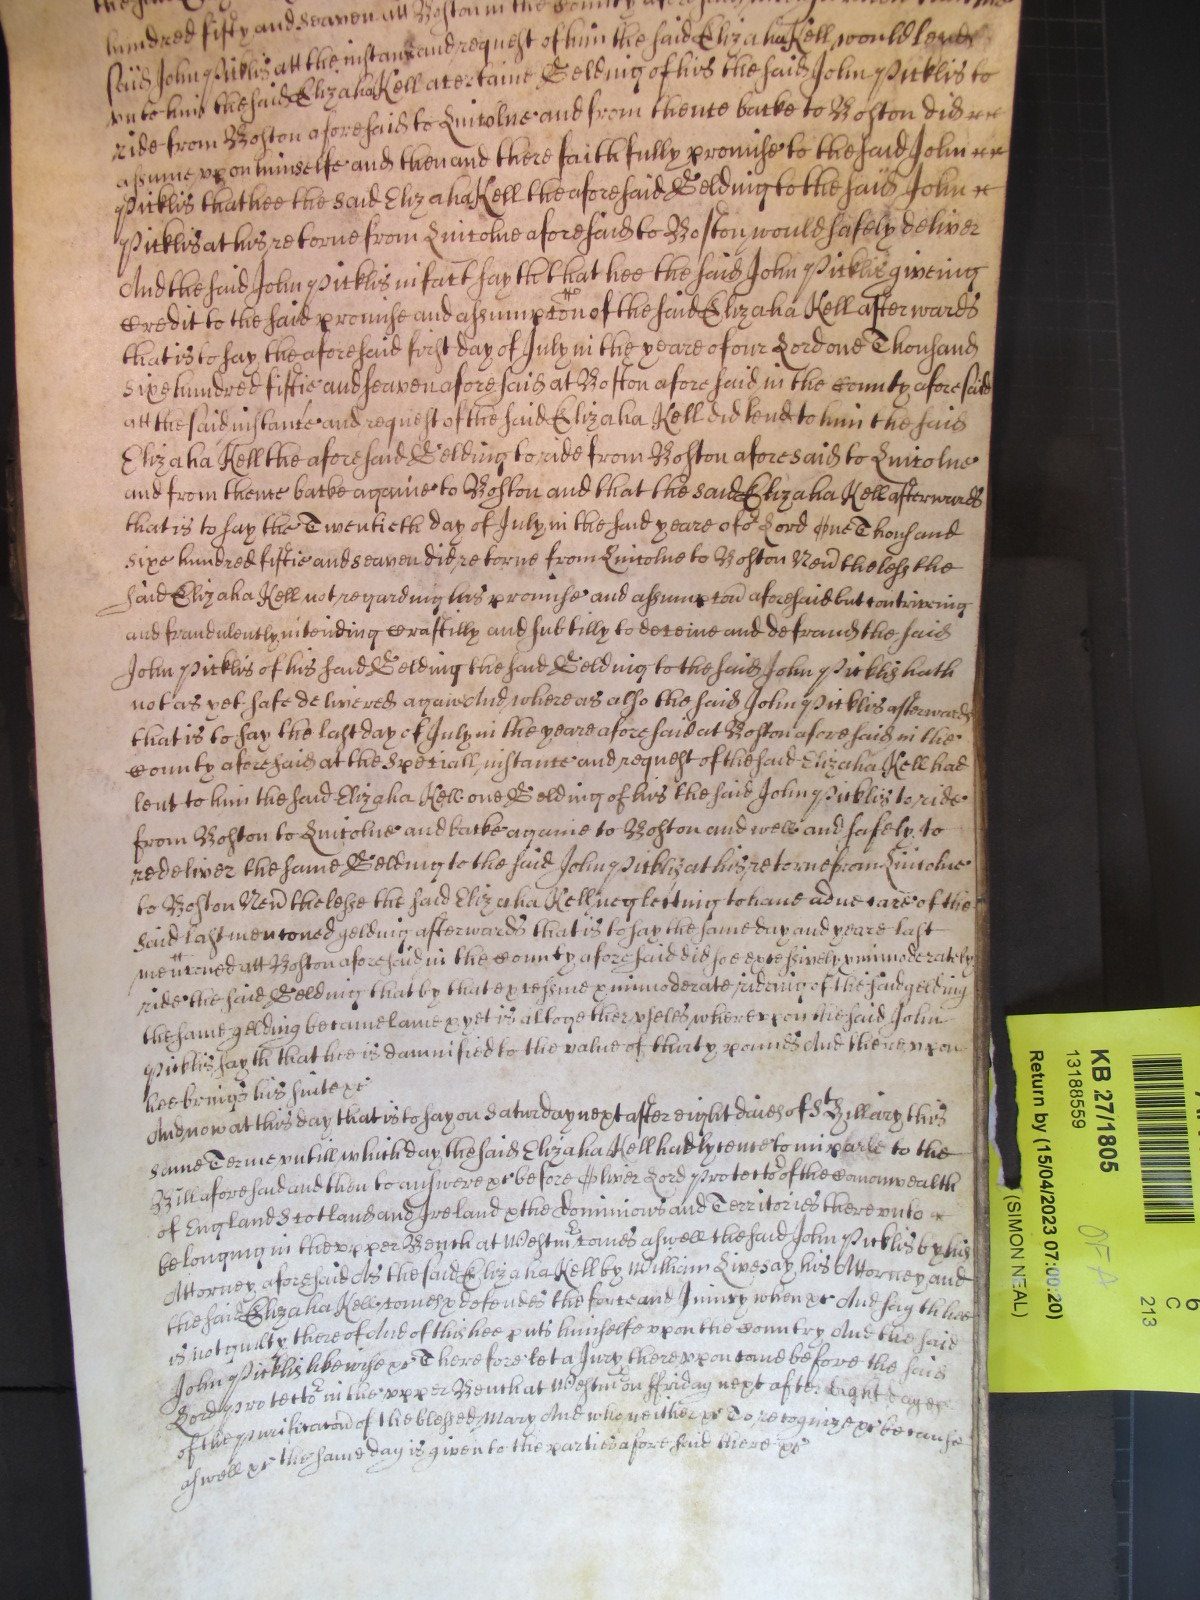 hundred fifty and seaven att Boston in the County afore
said John Picklis att the instance and request of him the said Elizaha Kell would lend
unto him the said Elizaha Kell a certaine Gelding of his the said John Picklis to
ride from Boston aforesaid to Lincolne and from thence backe to Boston did
assume upon himselfe and then and there faithfully promise to the said John
Picklis that hee the said Elizaha Kell the aforesaid Gelding to the said John
Picklis at his retorne from Lincolne aforesaid to Boston would safely deliver
And the said John Picklis in fact sayth that hee the said John Picklis giveing
Credit to the said promise and assumpton of the said Elizaha Kell afterwards
that is to say the aforesaid first day of July in the yeare of our Lord one Thousand
sixe hundred fiftie and seaven aforesaid at Boston aforesaid in the County aforesaid
att the said instance and request of the said Elizaha Kell did lend to him the said
Elizaha Kell the aforesaid Gelding to ride from Boston aforesaid to Lincolne
and from thence backe againe to Boston and that the said Elizaha Kell afterwards
that is to say the Twentieth day of July in the said yeare of or Lord One Thousand
sixe hundred fiftie and seaven did retorne from Lincolne to Boston Neutheless the
said Elizaha Kell not regarding his promise and assumpton aforesaid but contriveing
and fraudulently intending craftilly and subtilly to deceive and defraud the said
John Picklis of his said Gelding the said Gelding to the said John Picklis hath
not as yet safe delivered againe And whereas also the said John Picklis afterwards
that is to say the last day of July in the yeare aforesaid at Boston aforesaid in the
County aforesaid at the speciall instance and request of the said Elizaha Kell had
lent to him the said Elizaha Kell one Gelding of his the said John Picklis to ride
from Boston to Lincolne and backe againe to Boston and well and safely to
redeliver the same Gelding to the said John Picklis at his retorne from Lincolne
to Boston Neuthelesse the said Elizaha Kell neglecting to have a due care of the
said last mentoned gelding afterwards that is to say the same day and yeare last
mentioned att Boston aforesaid in the County aforesaid did soe excessively & immoderately
ride the said Gelding that by that excessive & immoderate riding of the said gelding
the same gelding became lame & yet is altogether useles whereupon the said John
Picklis sayth that hee is damnified to the value of thirty pounds And thereupon
hee brings his suite &c
And now at this day that is to say on Saturday next after eight daies of St Hillary this
same Terme untill which day the said Elizaha Kell had lycence to imparle to the
Bill aforesaid and then to answere &c before Oliver Lord Protector of the Comonwealth
of England Scotland and Ireland & the Dominions and Territories thereunto
belonging in the upper Bench at Westmr comes aswell the said John Picklis by his
Attorney aforesaid As the said Elizaha Kell by William Livesay his Attorney and
the said Elizaha Kell comes & defendes the force and Iniury when &c And sayth hee
is not guilty thereof And of this hee puts himselfe upon the Country And the said
John Picklis likewise &c Therefore let a Jury thereupon come before the said
Lord Protector in the upper Bench at Westmr on ffriday next after Eight dayes
of the Purificaton of the blessed Mary And who neither &c To recognize &c because
aswell &c the same day is given to the parties aforesaid there &c
KB 27/1805
13188559
Return by (15/04/2023 07:00:20)
(SIMON NEAL)
OFA
6
C
213